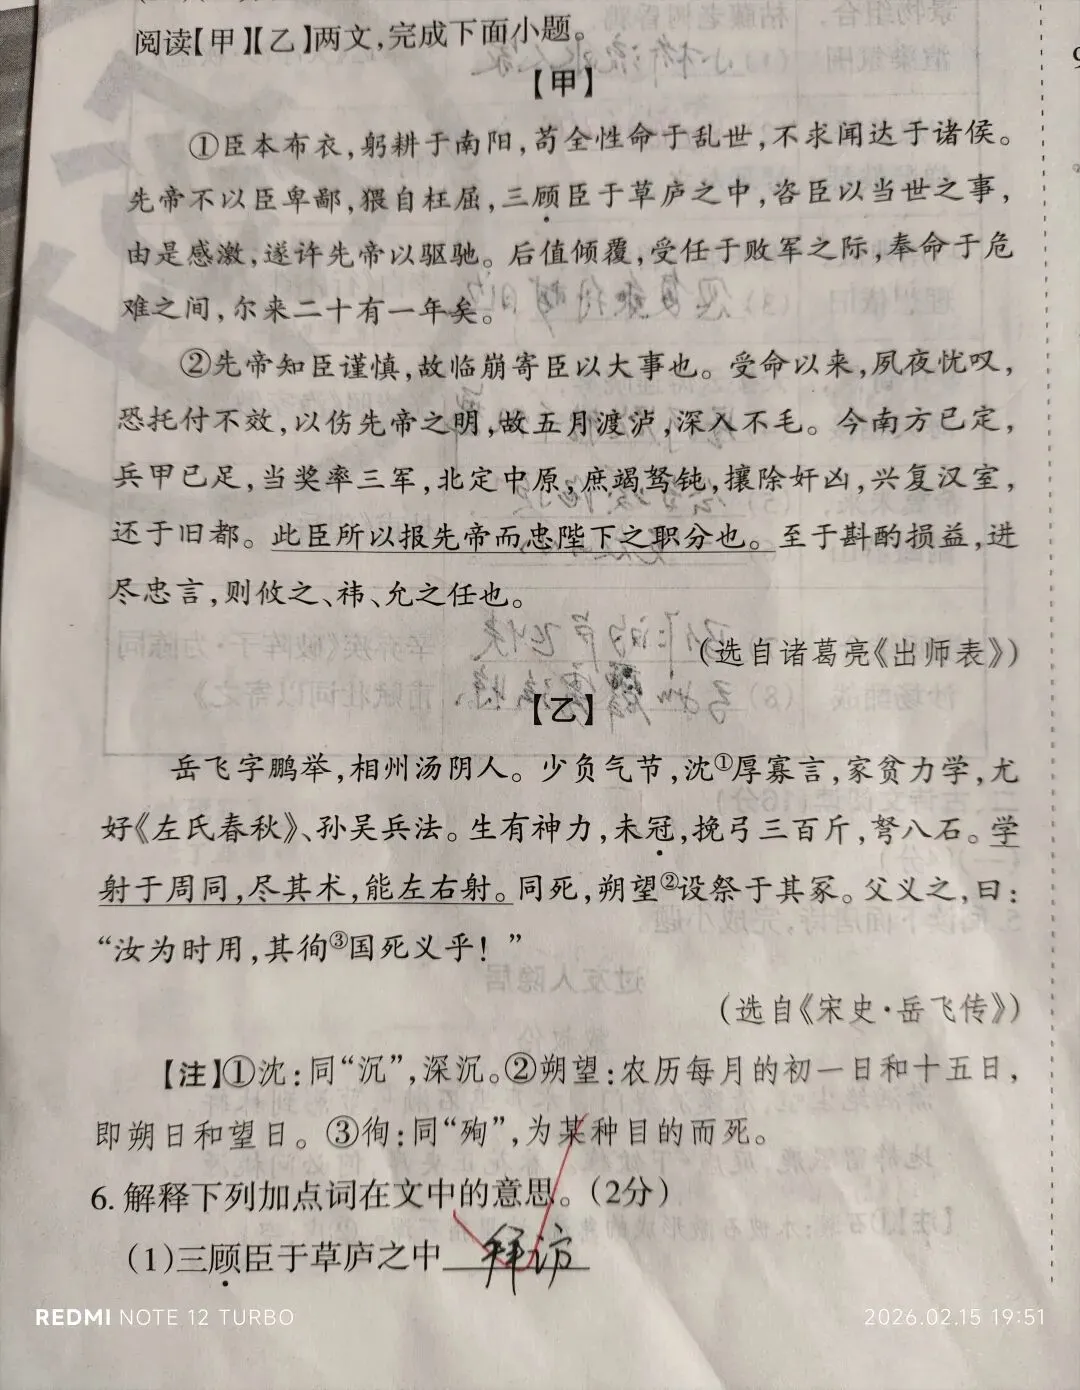 阅读【甲】【乙】两文,完成下面小题。
【甲】
①臣本布衣,躬耕于南阳,苟全性命于乱世,不求闻达于诸侯。
先帝不以臣卑鄙,猥自枉屈,三顾臣于草庐之中,咨臣以当世之事,
由是感激,遂许先帝以驱驰。后值倾覆,受任于败军之际,奉命于危
难之间,尔来二十有一年矣。
②先帝知臣谨慎,故临崩寄臣以大事也。受命以来,夙夜忧叹,
恐托付不效,以伤先帝之明,故五月渡泸,深入不毛。今南方已定,
兵甲已足,当奖率三军,北定中原,庶竭驽钝,攘除奸凶,兴复汉室,
还于旧都。此臣所以报先帝而忠陛下之职分也。至于斟酌损益,进
尽忠言,则攸之、祎、允之任也。
(选自诸葛亮《出师表》)
【乙】
岳飞字鹏举,相州汤阴人。少负气节,沈①厚寡言,家贫力学,尤
好《左氏春秋》、孙吴兵法。生有神力,未冠,挽弓三百斤,弩八石。学
射于周同,尽其术,能左右射。同死,朔望②设祭于其冢。父义之,曰:
“汝为时用,其徇③国死义乎!”
(选自《宋史·岳飞传》)
【注】①沈:同“沉”,深沉。②朔望:农历每月的初一日和十五日,
即朔日和望日。③徇:同“殉”,为某种目的而死。
6.解释下列加点词在文中的意思。(2分)
(1)三顾臣于草庐之中 拜访
REDMI NOTE 12 TURBO
2026.02.15 19:51